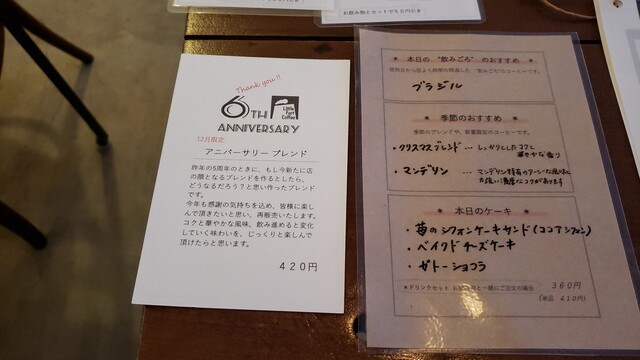 お飲み物とセットで50円引き
Thank you!!
6TH
Little Fort Coffee
ANNIVERSARY
12月限定
アニバーサリー ブレンド
昨年の5周年のときに、もし今新たに店
の顔となるブレンドを作るとしたら、
どうなるだろう?と思い作ったブレンド
です。
今年も感謝の気持ちを込め、皆様に楽し
んで頂きたいと思い、再販売いたします。
コクと華やかな風味、飲み進めると変化
していく味わいを、じっくりと楽しんで
頂けたらと思います。
420円
本日の "飲みごろ" のおすすめ
ブラジル
季節のおすすめ
季節のブレンドや、数量限定のコーヒーです。
・クリスマスブレンド - しっかりとしたコクと
華やかな香り
・マンデリン - マンデリン特有のアーシーな風味に
力強い濃厚なコクがあります
本日のケーキ
・苺のシフォンケーキサンド(ココアシフォン)
・ベイクドチーズケーキ
・ガトーショコラ
＊ドリンクセット お飲み物と一緒にご注文の場合 360円
(単品 410円)